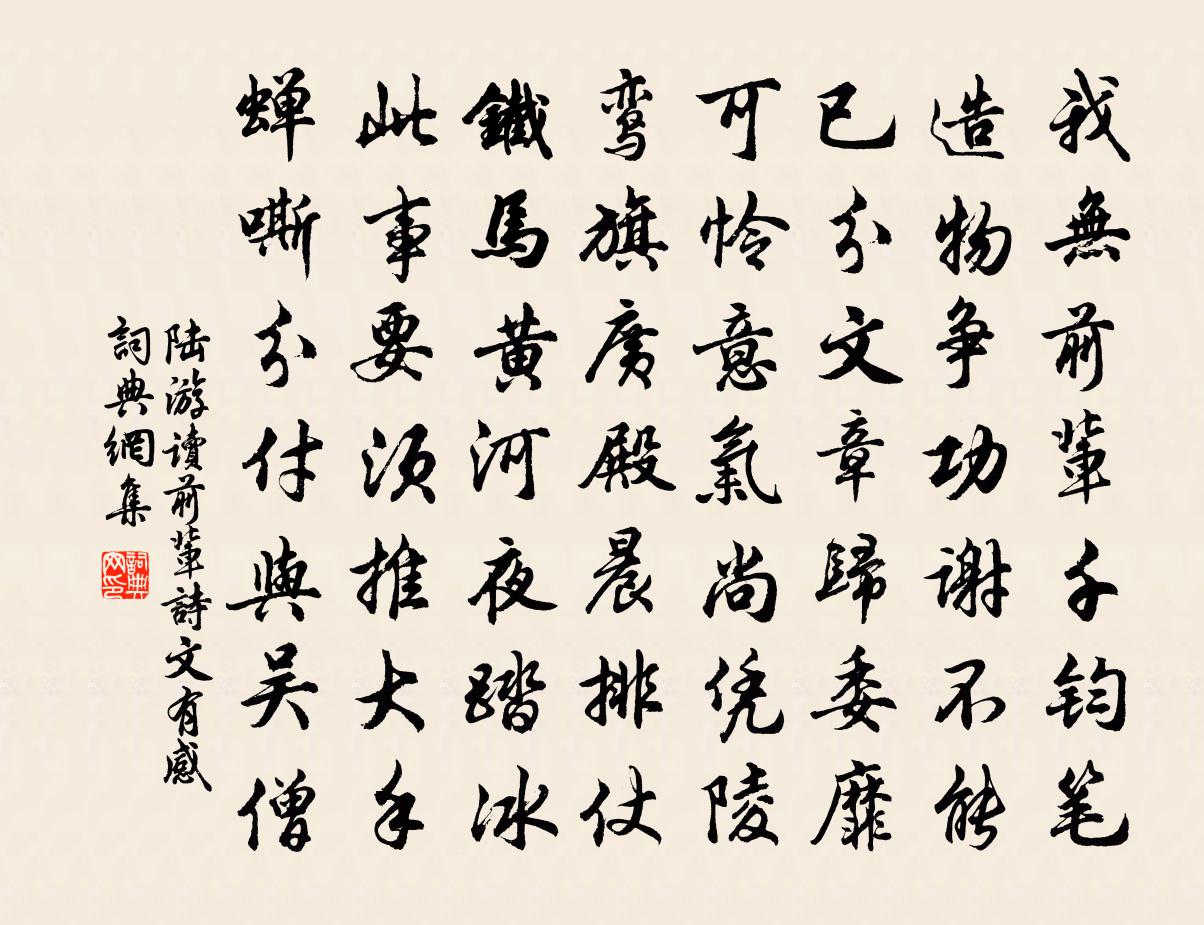 我無前輩千鈞笔
造物争功谢不能
已分文章歸委靡
可怜意氣尚凭陵
鸾旗廣殿晨排仗
鐵馬黄河夜踏冰
此事要须推大手
蝉嘶分付與吴僧
陆游读前輩詩文有感
詞典網集
詞典网印